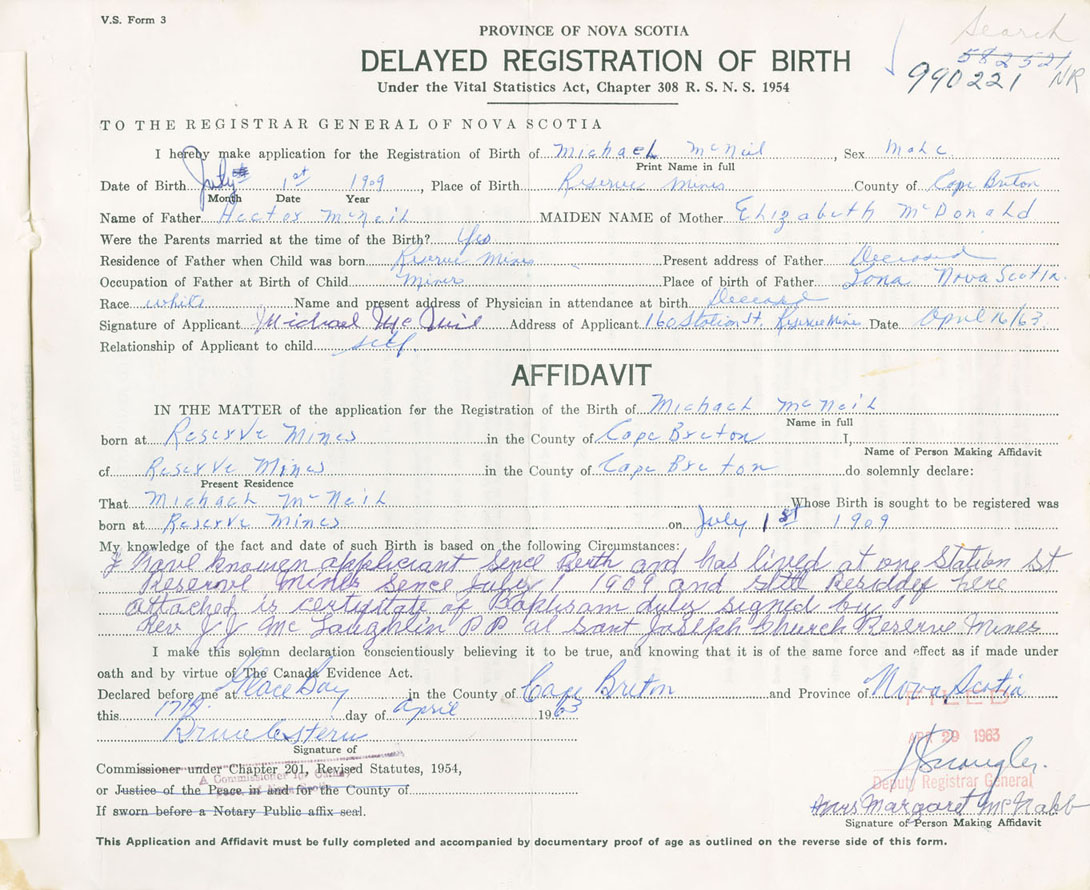 V.S. Form 3
Search
PROVINCE OF NOVA SCOTIA
582521
DELAYED REGISTRATION OF BIRTH
990221 NR
Under the Vital Statistics Act, Chapter 308 R. S. N. S. 1954
TO THE REGISTRAR GENERAL OF NOVA SCOTIA
I hereby make application for the Registration of Birth of Michael McNeil, Sex Male
Print Name in full
Date of Birth July 1st 1909, Place of Birth Reserve Mines County of Cape Briton
Month Date Year
Name of Father Hector McNeil MAIDEN NAME of Mother Elizabeth McDonald
Were the Parents married at the time of the Birth? Yes
Residence of Father when Child was born Reserve Mines Present address of Father Deceased
Occupation of Father at Birth of Child Miner Place of birth of Father Iona Nova Scotia
Race white Name and present address of Physician in attendance at birth Deceased
Signature of Applicant Michael McNeil Address of Applicant 160 Station St. Reserve Mines Date April 16/63
Relationship of Applicant to child self
AFFIDAVIT
IN THE MATTER of the application for the Registration of the Birth of Michael McNeil
Name in full
born at Reserve Mines in the County of Cape Breton I,
Name of Person Making Affidavit
of Reserve Mines in the County of Cape Breton do solemnly declare:
Present Residence
That Michael McNeil Whose Birth is sought to be registered was
born at Reserve Mines on July 1st 1909
My knowledge of the fact and date of such Birth is based on the following Circumstances:
I have knowen applicant Sence Berth and has lived at one Station St
Reserve Mines Sence July 1 1909 and still Resides here
attached is certifitate of Baptisam duly signed by
Rev J J McLaughlin PP at Sant Joseph Church Reserve Mines
I make this solemn declaration conscientiously believing it to be true, and knowing that it is of the same force and effect as if made under
oath and by virtue of The Canada Evidence Act.
Declared before me at Glace Bay in the County of Cape Briton and Province of Nova Scotia
FILED
this 17th day of April 1963
APR 29 1963
Signature of
Commissioner under Chapter 201, Revised Statutes, 1954,
A Commissioner for
or Justice of the Peace in and for the County of
Deputy Registrar General
If sworn before a Notary Public affix seal.
Mrs Margaret McNabb
Signature of Person Making Affidavit
This Application and Affidavit must be fully completed and accompanied by documentary proof of age as outlined on the reverse side of this form.